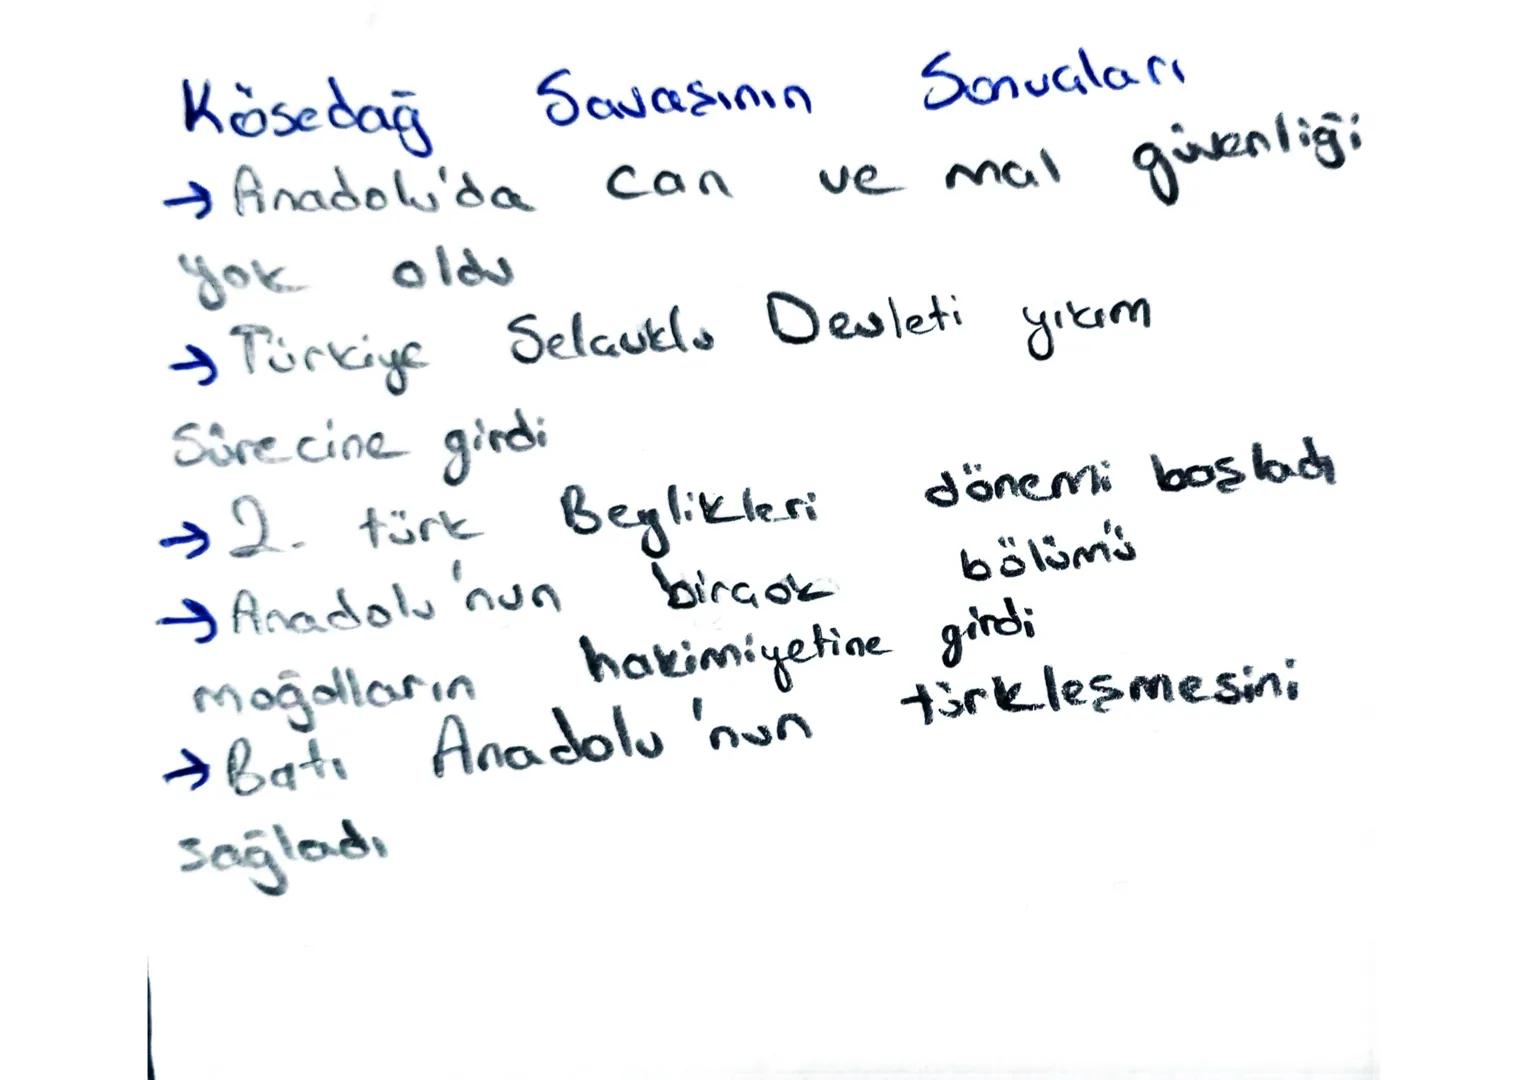 Kösedağ Savaşının Sonuçları
→ Anadolu'da can ve mal güvenliği
yok oldu
→ Türkiye Selçuklu Devleti yıkım
Sürecine girdi
→ 2. türk Beylikleri dönemi başladı
→ Anadolu'nun birçok bölümü
moğolların hakimiyetine girdi
→ Batı Anadolu'nun türkleşmesini
sağladı